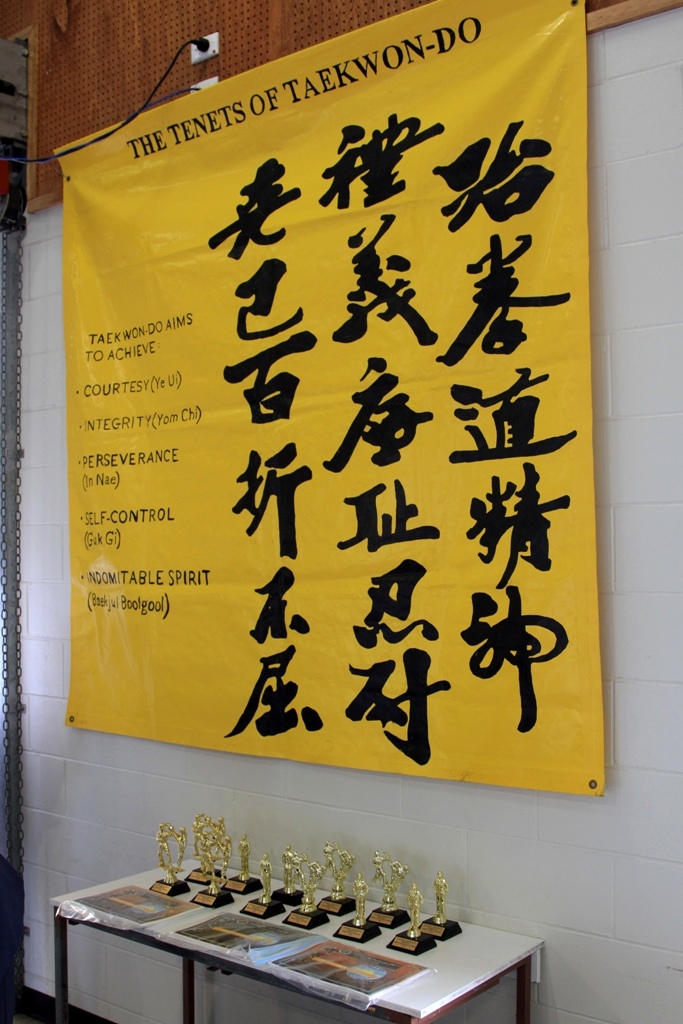 THE TENETS OF TAEKWON-DO
跆拳道精神
禮義廉恥忍耐
克己百折不屈
TAEKWON-DO AIMS
TO ACHIEVE:
• COURTESY (Ye Ui)
• INTEGRITY (Yom Chi)
• PERSEVERANCE
(In Nae)
• SELF-CONTROL
(Guk Gi)
• INDOMITABLE SPIRIT
(Baekjul Boolgool)